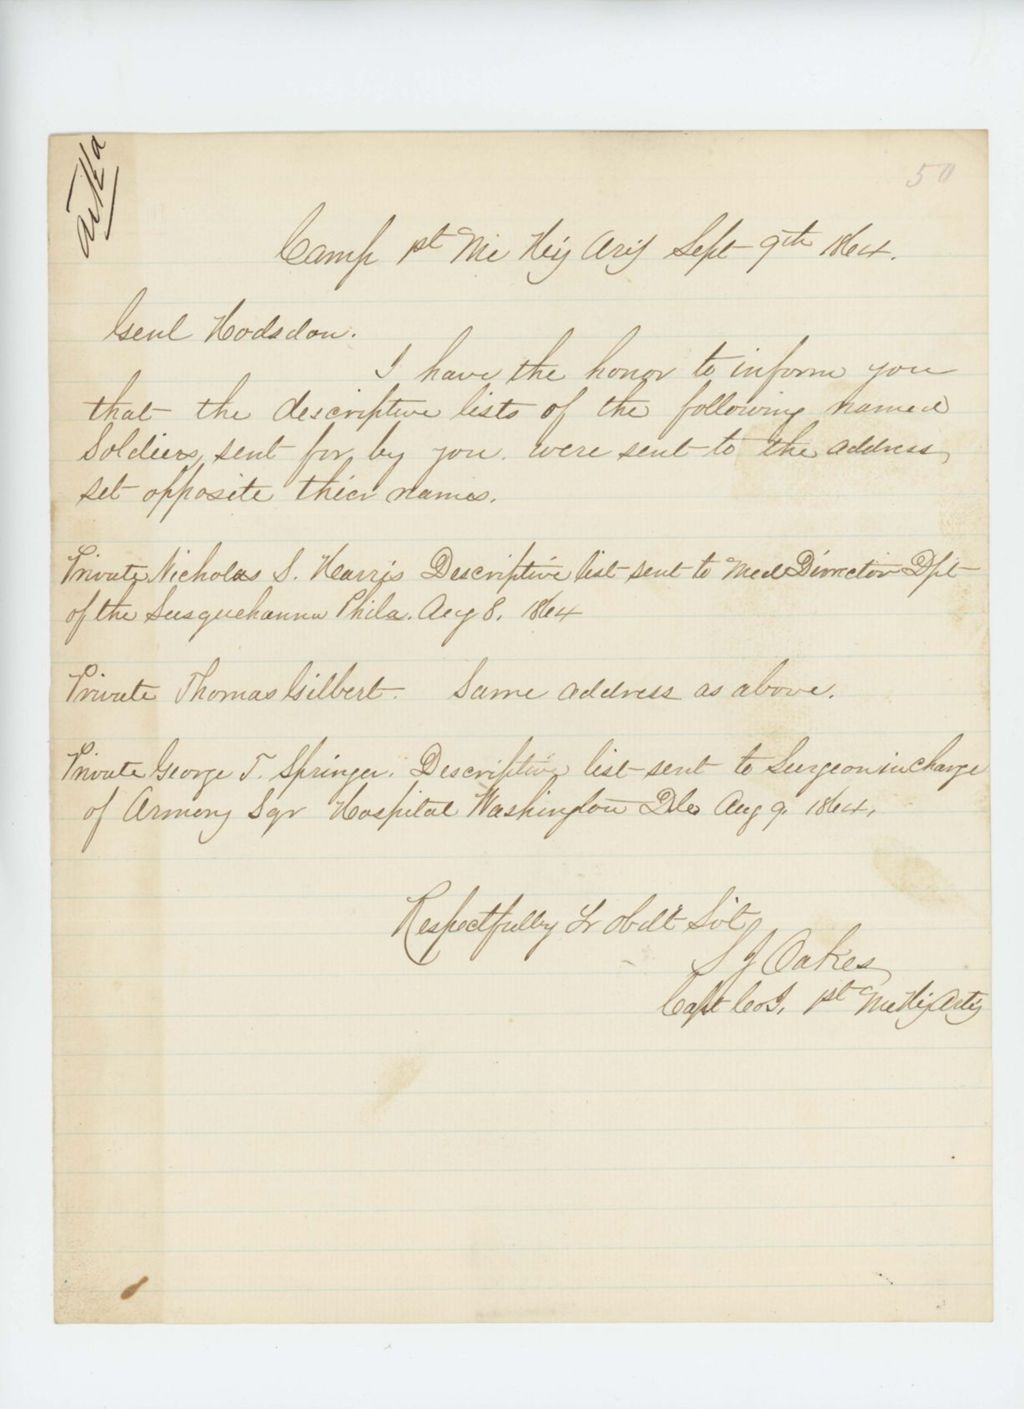 50
Camp 1st Me Hvy Arty Sept 9th 1864.
Genl Hodsdon.
I have the honor to inform you
that the descriptive lists of the following named
Soldiers, sent for by you were sent to the address,
set opposite thier names.
Private Nicholas S. Harris Descriptive list sent to Med Director Dpt
of the Susquehanna Phila. Aug 8. 1864
Private Thomas Gilbert. Same address as above.
Private George T. Springer. Descriptive list sent to Surgeon in Charge
of Armory Sqr Hospital Washington D.C. Aug 9. 1864,
Respectfully Yr Obdt Svt,
S J Oakes
Capt Co I, 1st Me Hvy Arty